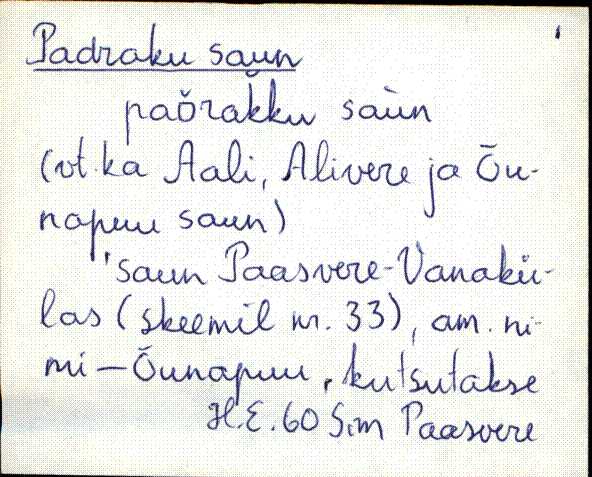 Padraku saun
paŏrakku saùn
(vt. ka Aali, Alivere ja Õu-
napuu saun)
'saun Paasvere-Vanakü-
las (skeemil nr. 33), am. ni-
mi — Õunapuu, kutsutakse
H.E. 60 Sim Paasvere